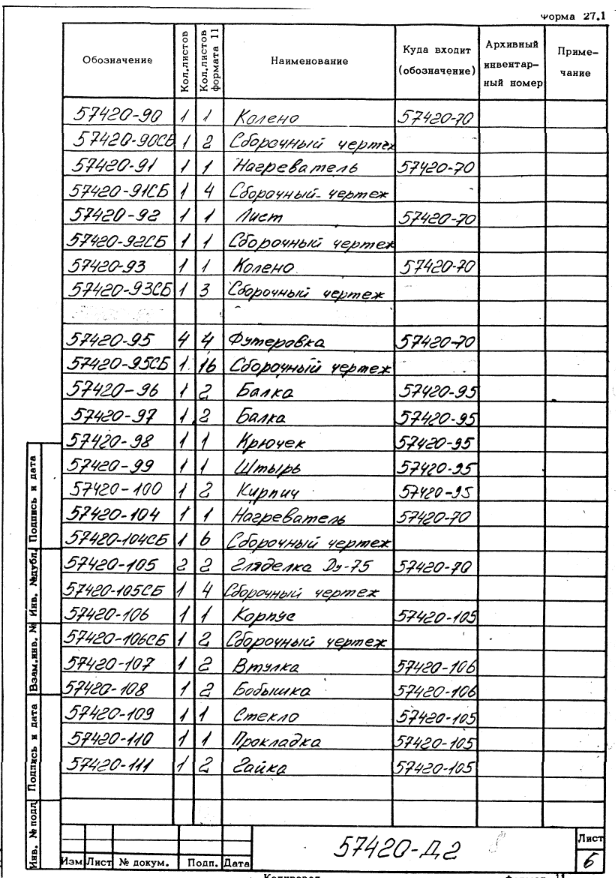 Форма 27.1
Обозначение Кол.листов Кол.листов формата 11 Наименование Куда входит (обозначение) Архивный инвентарный номер Примечание
57420-90 1 1 Колено 57420-70
57420-90СБ 1 2 Сборочный чертеж
57420-91 1 1 Нагреватель 57420-70
57420-91СБ 1 4 Сборочный чертеж
57420-92 1 1 Лист 57420-70
57420-92СБ 1 1 Сборочный чертеж
57420-93 1 1 Колено 57420-70
57420-93СБ 1 3 Сборочный чертеж
57420-95 4 4 Футеровка 57420-70
57420-95СБ 1 16 Сборочный чертеж
57420-96 1 2 Балка 57420-95
57420-97 1 2 Балка 57420-95
57420-98 1 1 Крючек 57420-95
57420-99 1 1 Штырь 57420-95
57420-100 1 2 Кирпич 57420-95
57420-104 1 1 Нагреватель 57420-70
57420-104СБ 1 6 Сборочный чертеж
57420-105 2 2 Гляделка Ду-75 57420-70
57420-105СБ 1 4 Сборочный чертеж
57420-106 1 1 Корпус 57420-105
57420-106СБ 1 2 Сборочный чертеж
57420-107 1 2 Втулка 57420-106
57420-108 1 2 Бобышка 57420-106
57420-109 1 1 Стекло 57420-105
57420-110 1 1 Прокладка 57420-105
57420-111 1 2 Гайка 57420-105
Инв. № подл Подпись и дата Взам.инв. № Инв. №дубл. Подпись и дата
57420-Д2
Лист
6
Изм Лист № докум. Подп. Дата
Копировал Формат 11